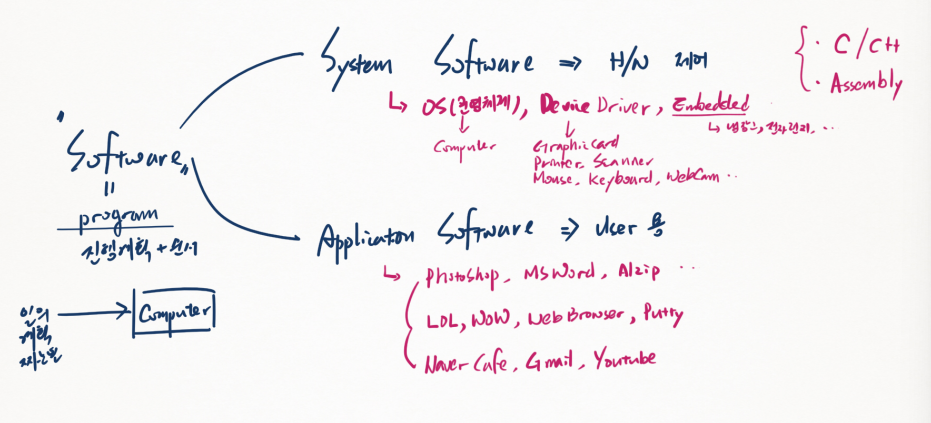 System Software ⇒ H/W 제어
{ · C/C++
· Assembly
↳ OS(운영체제), Device Driver, Embedded
↳ 냉장고, 전자렌지, ··
Computer
Graphiccard
Printer, Scanner
Mouse, Keyboard, WebCam ··
"Software"
=
program
진행계획 + 순서
Application Software ⇒ User 용
↳ Photoshop, MS Word, Alzip ··
LOL, WOW, Web Browser, Putty
Naver Cafe, Gmail, Youtube
→ Computer
계획